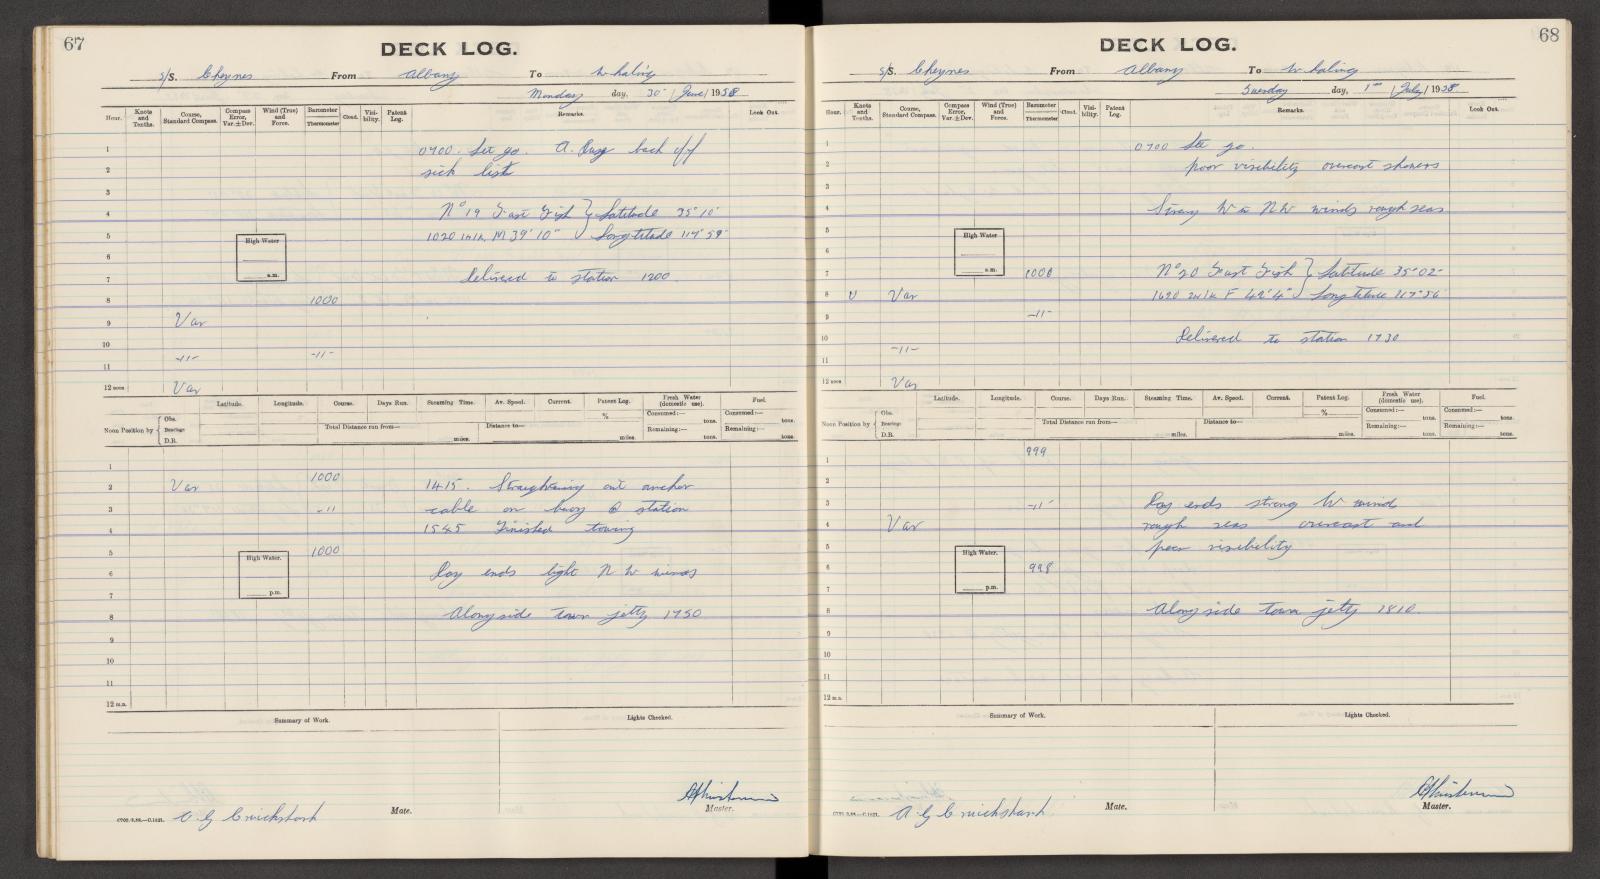 67
DECK LOG.
S/S. Cheynes From Albany To Whaling
Monday day, 30 / June / 1958
Hour. Knots and Tenths. Course, Standard Compass. Compass Error, Var.±Dev. Wind (True) and Force. Barometer Thermometer Cloud. Visibility. Patent Log. Remarks. Look Out.
1 0700. Let go. A. back off
2 sick list
3
4 No 19 Fast Fish } Latitude 35° 10'
5 1020 M 39' 10" } Longtitude 117° 59'
High Water
a.m.
6
7 Delivered to station 1200
8 1000
9 Var
10
11 -11- -11-
12 noon Var
Latitude. Longitude. Course. Days Run. Steaming Time. Av. Speed. Current. Patent Log. Fresh Water (domestic use). Fuel.
Noon Position by { Obs. Bearings D.R. % Consumed:— tons. Consumed:—
Total Distance run from— miles. Distance to— miles. Remaining:— tons. Remaining:— tons.
1 1000
2 Var 1415. Straightening out anchor
3 -11 cable on buoy @ station
4 1545 Finished towing
5 1000
High Water.
p.m.
6 Day ends light N W winds
7
8 Alongside town jetty 1750
9
10
11
12 m.n.
Summary of Work. Lights Checked.
A G Cruickshank Mate. Master.
68
DECK LOG.
S/S. Cheynes From Albany To Whaling
Tuesday day, 1st / July / 1958
Hour. Knots and Tenths. Course, Standard Compass. Compass Error, Var.±Dev. Wind (True) and Force. Barometer Thermometer Cloud. Visibility. Patent Log. Remarks. Look Out.
1 0700 Let go.
2 poor visibility overcast showers
3
4 Strong W to NW winds rough seas
5
High Water
a.m.
6
7 1000 No 20 Fast Fish } Latitude 35° 02'
8 Var 1620 F 42' 4" } Longtitude 117° 56'
9 -11-
10 Delivered to station 1730
11 -11-
12 noon Var
Latitude. Longitude. Course. Days Run. Steaming Time. Av. Speed. Current. Patent Log. Fresh Water (domestic use). Fuel.
Noon Position by { Obs. Bearings D.R. % Consumed:— tons. Consumed:—
Total Distance run from— miles. Distance to— miles. Remaining:— tons. Remaining:— tons.
1 999
2
3 -11- Day ends strong W winds
4 Var rough seas overcast and
5 poor visibility
High Water.
p.m.
6 998
7
8 Alongside town jetty 1810
9
10
11
12 m.n.
Summary of Work. Lights Checked.
A G Cruickshank Mate. Master.